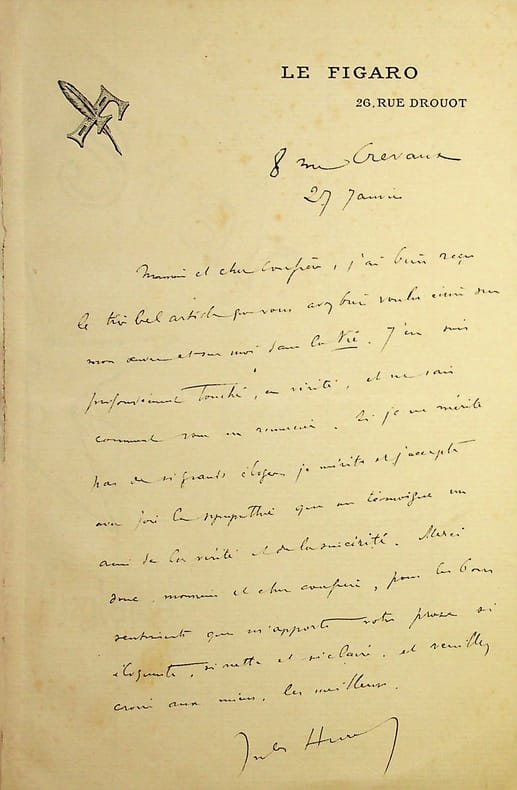 LE FIGARO
26, RUE DROUOT
8 rue Crevaux
27 Janvier
Monsieur et cher confrère, j'ai bien reçu
le très bel article que vous avez bien voulu écrire sur
mon œuvre et sur moi dans la Vie. J'en suis
profondément touché, en vérité, et ne sais
comment vous en remercier. Si je ne mérite
pas de si grands éloges je mérite et j'accepte
avec joie la sympathie que me témoigne un
ami de la vérité et de la sincérité. Merci
donc, monsieur et cher confrère, pour les bons
sentiments que m'apporte votre prose si
éloquente, si nette et si claire, et veuillez
croire aux miens, les meilleurs.
Jules Huret